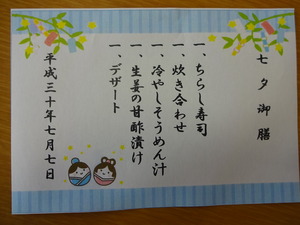 七夕御膳
一、ちらし寿司
一、炊き合わせ
一、冷やしそうめん汁
一、生姜の甘酢漬け
一、デザート
平成三十年七月七日